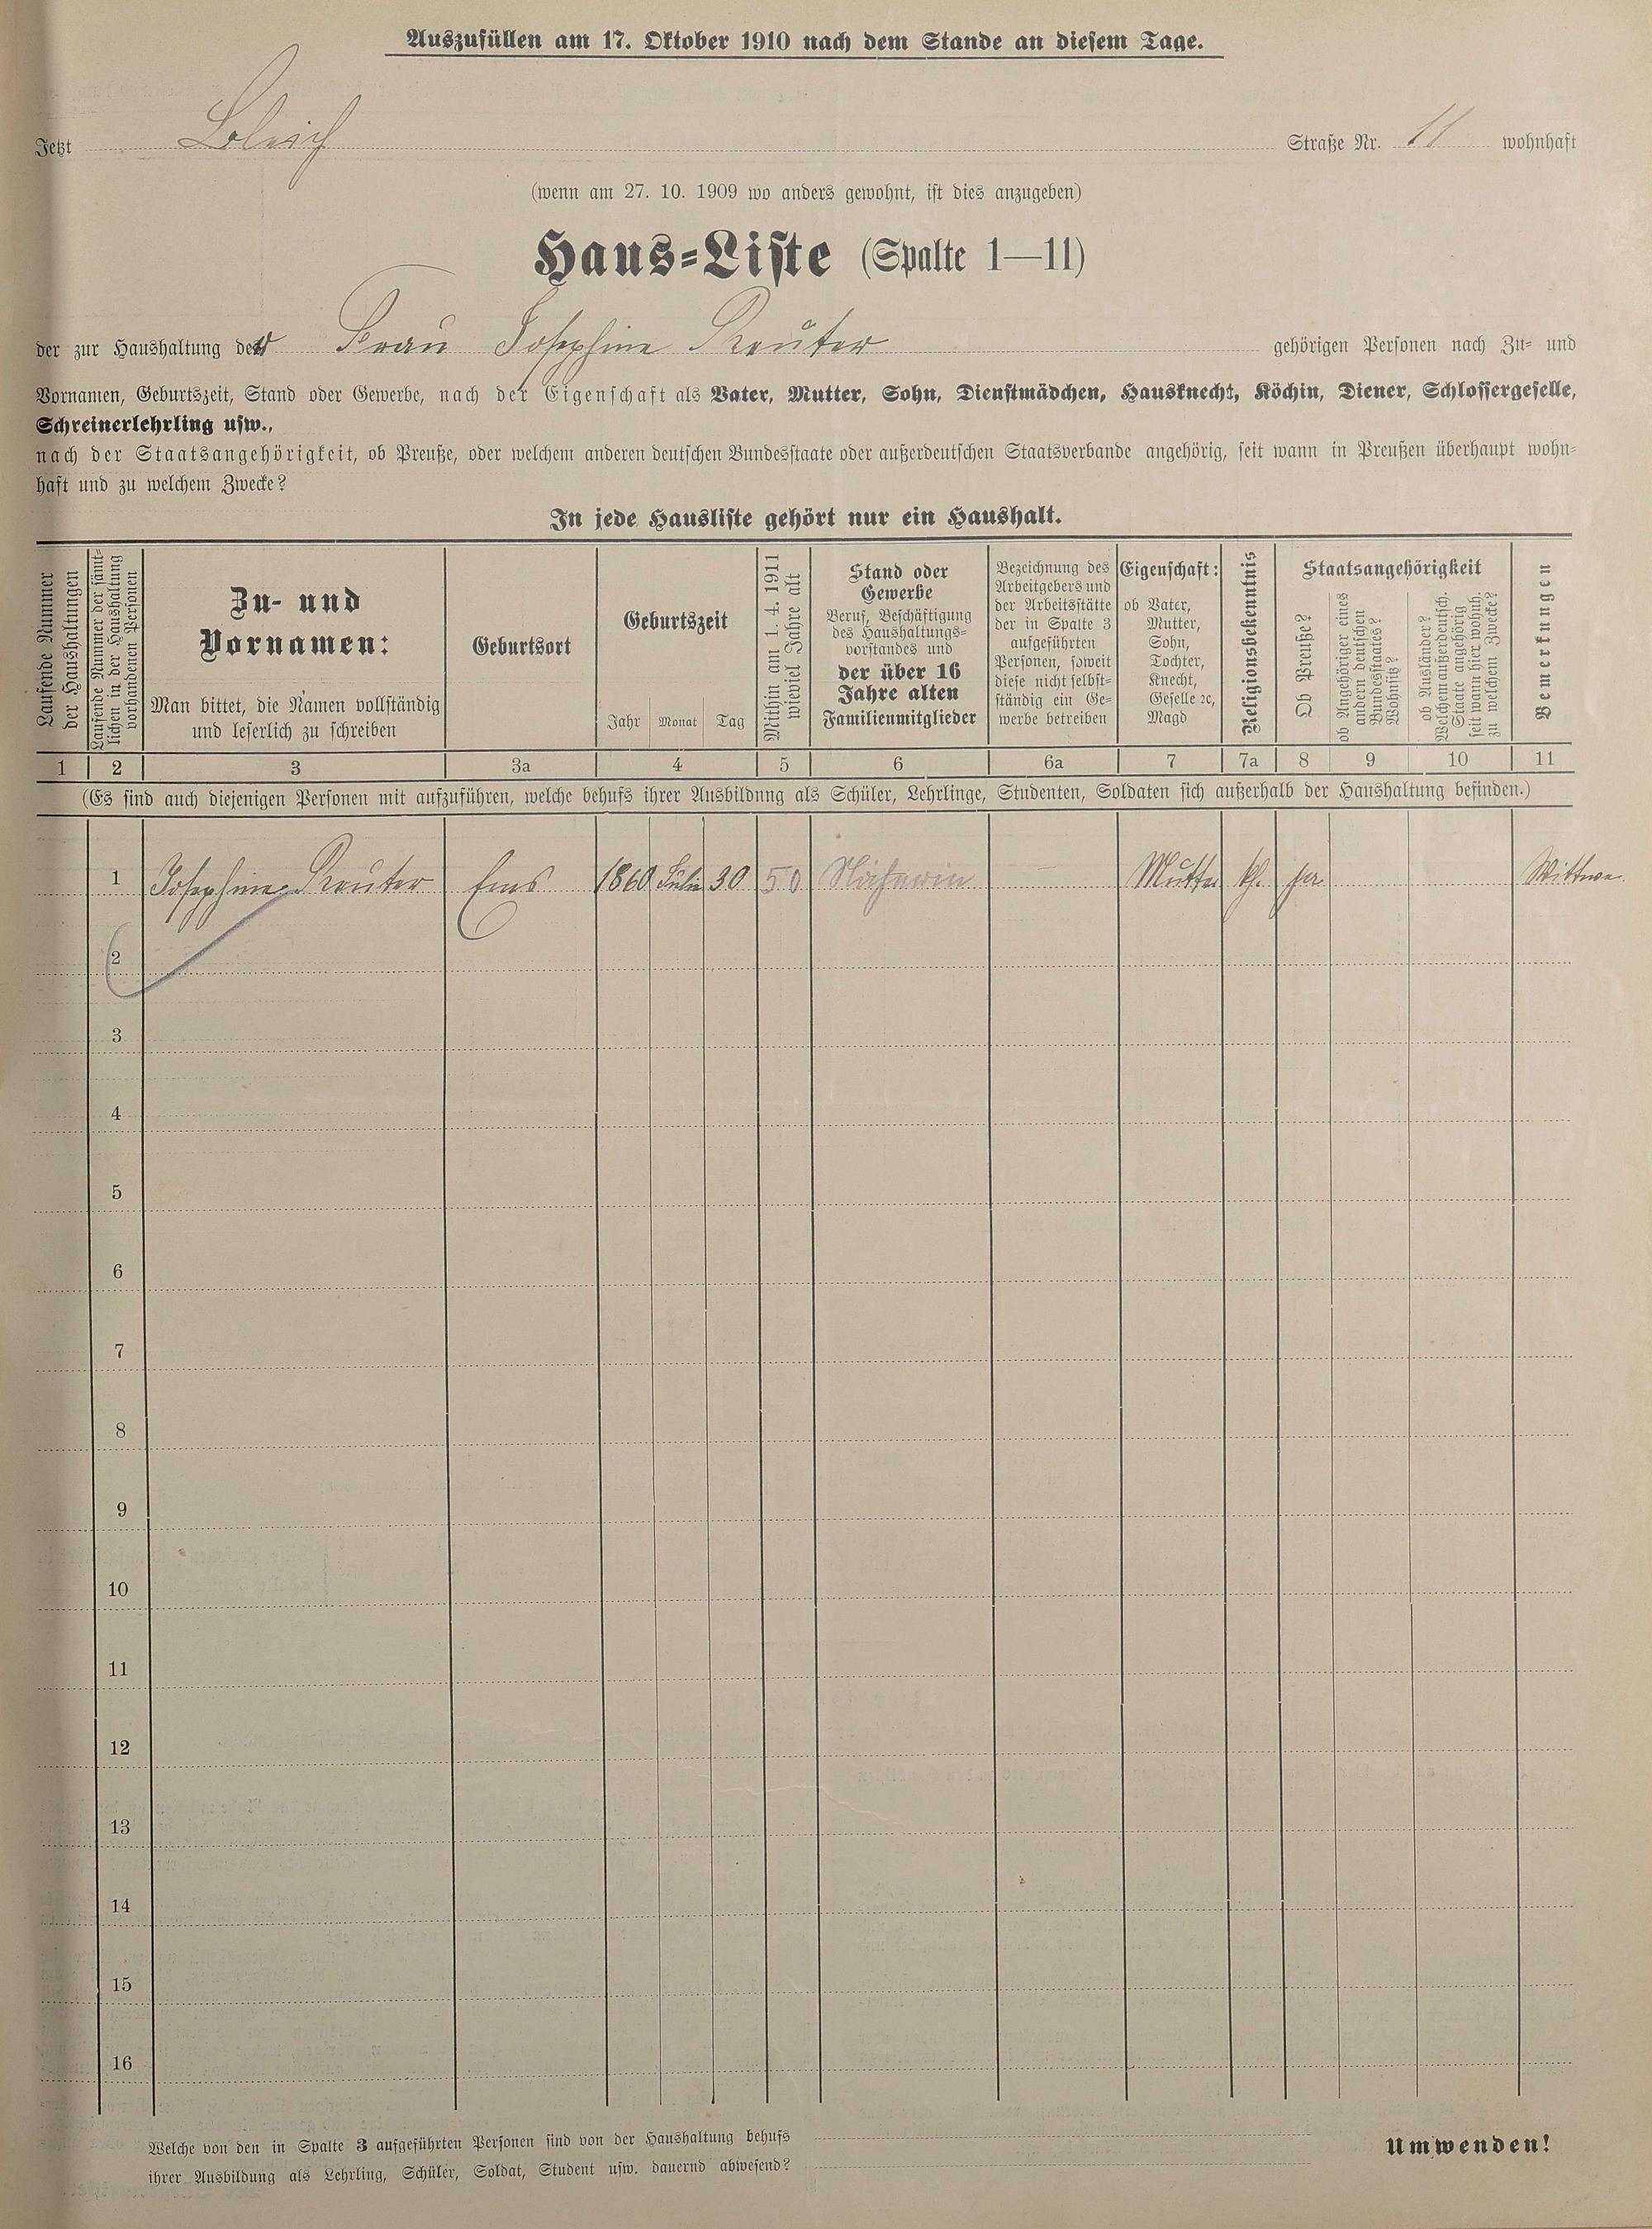 Auszufüllen am 17. Oktober 1910 nach dem Stande an diesem Tage.
Jetzt Straße Nr. 11 wohnhaft
(wenn am 27. 10. 1909 wo anders gewohnt, ist dies anzugeben)
Haus-Liste (Spalte 1—11)
der zur Haushaltung der Frau Josephine Reuter gehörigen Personen nach Zu- und
Vornamen, Geburtszeit, Stand oder Gewerbe, nach der Eigenschaft als Vater, Mutter, Sohn, Dienstmädchen, Hausknecht, Köchin, Diener, Schlossergeselle,
Schreinerlehrling usw.,
nach der Staatsangehörigkeit, ob Preuße, oder welchem anderen deutschen Bundesstaate oder außerdeutschen Staatsverbande angehörig, seit wann in Preußen überhaupt wohn-
haft und zu welchem Zwecke?
In jede Hausliste gehört nur ein Haushalt.
Laufende Nummer
der Haushaltungen
Laufende Nummer der sämt-
lichen in der Haushaltung
vorhandenen Personen
Zu- und
Vornamen:
Man bittet, die Namen vollständig
und leserlich zu schreiben
Geburtsort
Geburtszeit
Jahr Monat Tag
Mithin am 1. 4. 1911
wieviel Jahre alt
Stand oder
Gewerbe
Beruf, Beschäftigung
des Haushaltungs-
vorstandes und
der über 16
Jahre alten
Familienmitglieder
Bezeichnung des
Arbeitgebers und
der Arbeitsstätte
der in Spalte 3
aufgeführten
Personen, soweit
diese nicht selbst-
ständig ein Ge-
werbe betreiben
Eigenschaft:
ob Vater,
Mutter,
Sohn,
Tochter,
Knecht,
Geselle ꝛc,
Magd
Religionsbekenntnis
Staatsangehörigkeit
Ob Preuße?
ob Angehöriger eines
andern deutschen
Bundesstaates?
Wohnsitz?
ob Ausländer?
Welchem außerdeutsch.
Staate angehörig
seit wann hier wohnh.
zu welchem Zwecke?
Bemerkungen
1 2 3 3a 4 5 6 6a 7 7a 8 9 10 11
(Es sind auch diejenigen Personen mit aufzuführen, welche behufs ihrer Ausbildung als Schüler, Lehrlinge, Studenten, Soldaten sich außerhalb der Haushaltung befinden.)
1 Josephine Reuter Ems 1860 Juli 30 50 Näherin Mutter kh. ja Wittwe
2
3
4
5
6
7
8
9
10
11
12
13
14
15
16
Welche von den in Spalte 3 aufgeführten Personen sind von der Haushaltung behufs
ihrer Ausbildung als Lehrling, Schüler, Soldat, Student usw. dauernd abwesend?
Umwenden!